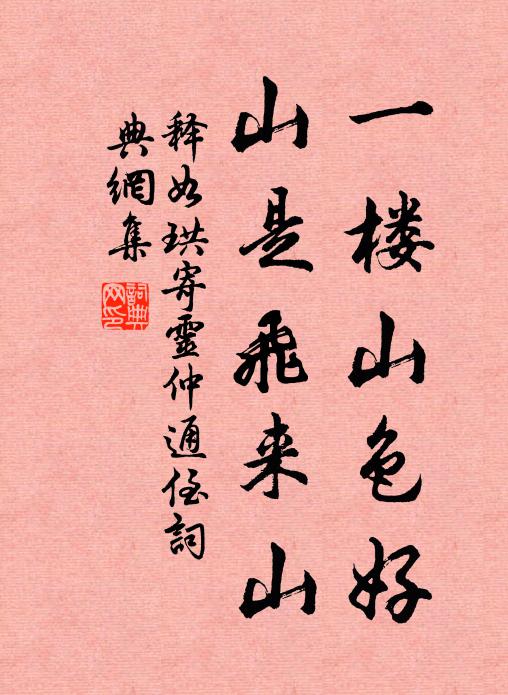 一楼山色好
山是飛来山
释如珙寄靈仲通侄詞
典網集
詞典网印